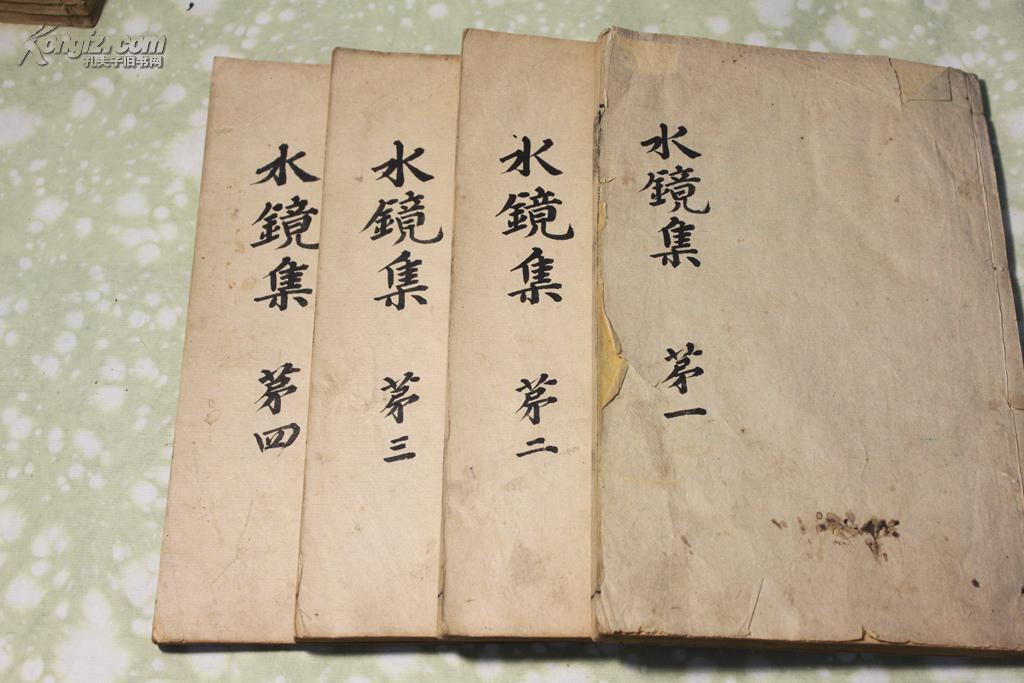 Kongfz.com
孔夫子旧书网
水鏡集 苐一
水鏡集 苐二
水鏡集 苐三
水鏡集 苐四